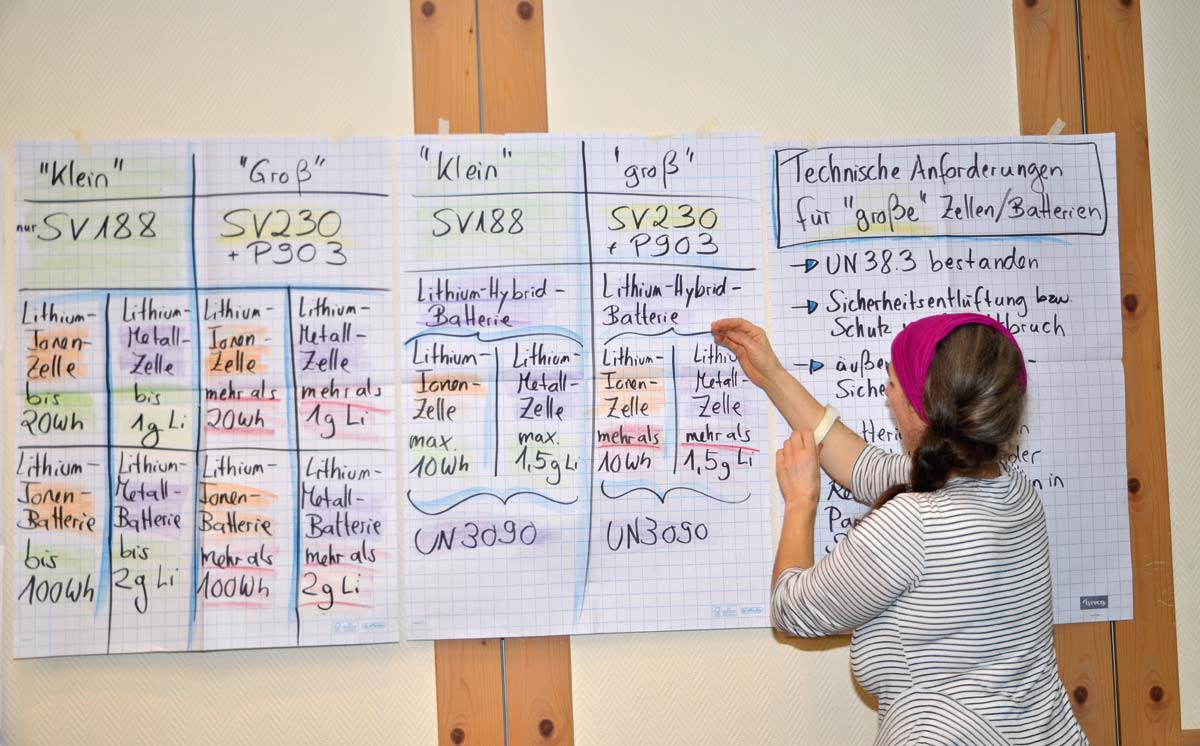 "Klein"
nur SV188
"Groß"
SV230
+ P903
Lithium-
Ionen-
Zelle
bis
20Wh
Lithium-
Metall-
Zelle
bis
1g Li
Lithium-
Ionen-
Zelle
mehr als
20Wh
Lithium-
Metall-
Zelle
mehr als
1g Li
Lithium-
Ionen-
Batterie
bis
100Wh
Lithium-
Metall-
Batterie
bis
2g Li
Lithium-
Ionen-
Batterie
mehr als
100Wh
Lithium-
Metall-
Batterie
mehr als
2g Li
"Klein"
SV188
"groß"
SV230
+ P903
Lithium-Hybrid-
Batterie
Lithium-
Ionen-
Zelle
max.
10Wh
Lithium-
Metall-
Zelle
max.
1,5g Li
UN3090
Lithium-Hybrid-
Batterie
Lithium-
Ionen-
Zelle
mehr als
10Wh
Metall-
Zelle
mehr als
1,5g Li
UN3090
Technische Anforderungen
für "große" Zellen/Batterien
UN 38.3 bestanden
Sicherheitsentlüftung bzw.
Schutz
in